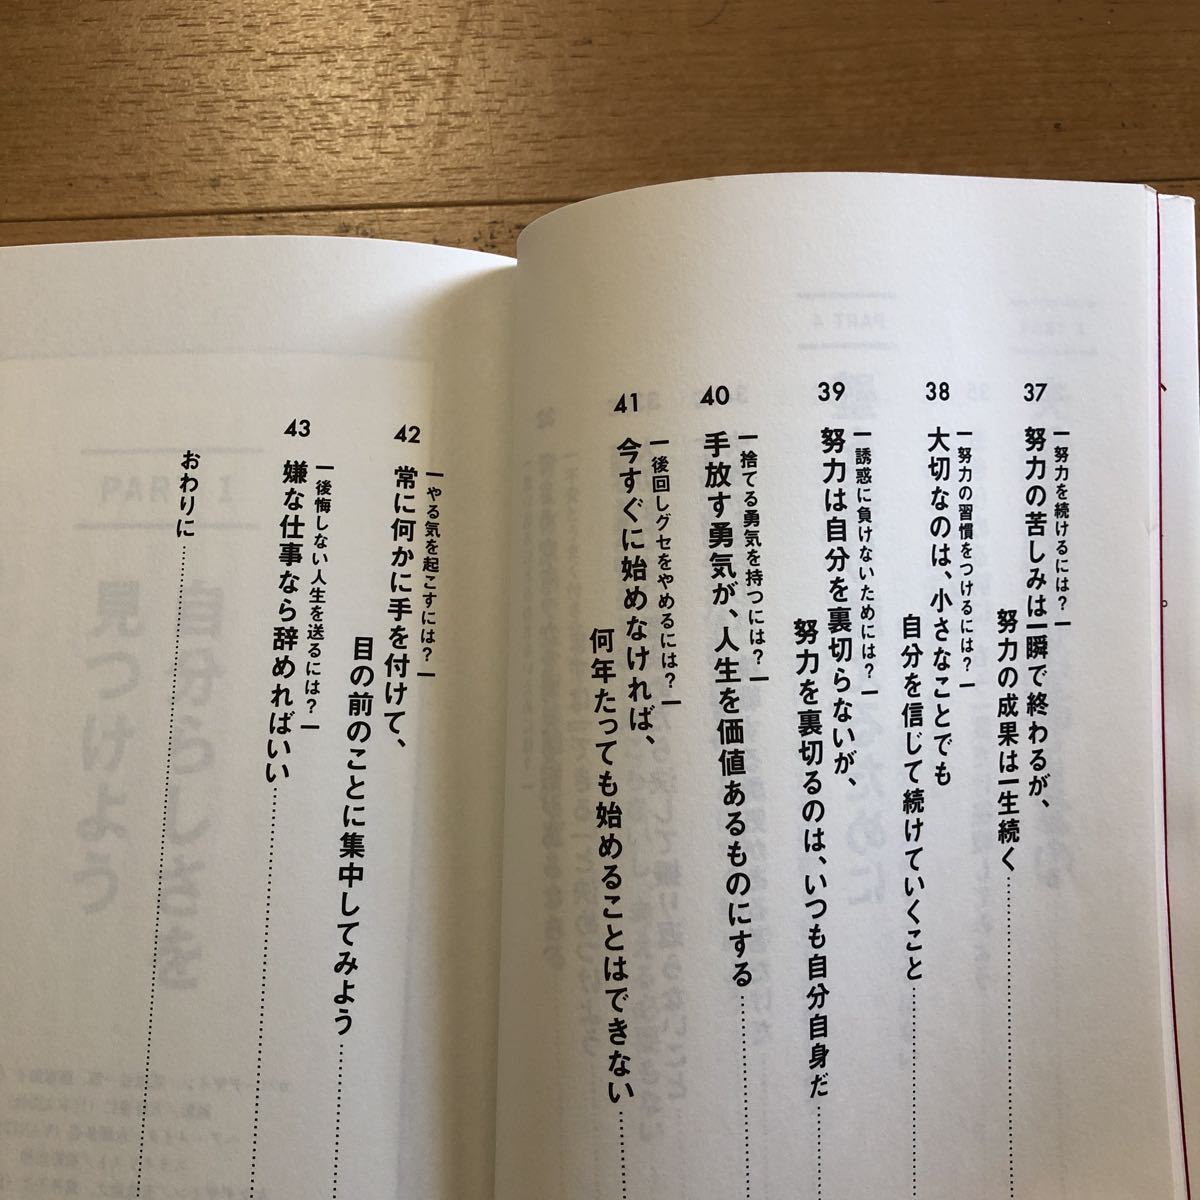 37
―努力を続けるには?―
努力の苦しみは一瞬で終わるが、
努力の成果は一生続く
38
―努力の習慣をつけるには?―
大切なのは、小さなことでも
自分を信じて続けていくこと
39
―誘惑に負けないためには?―
努力は自分を裏切らないが、
努力を裏切るのは、いつも自分自身だ
40
―捨てる勇気を持つには?―
手放す勇気が、人生を価値あるものにする
41
―後回しグセをやめるには?―
今すぐに始めなければ、
何年たっても始めることはできない
42
―やる気を起こすには?―
常に何かに手を付けて、
目の前のことに集中してみよう
43
―後悔しない人生を送るには?―
嫌な仕事なら辞めればいい
おわりに
PART 1
自分らしさを
見つけよう
PART 4